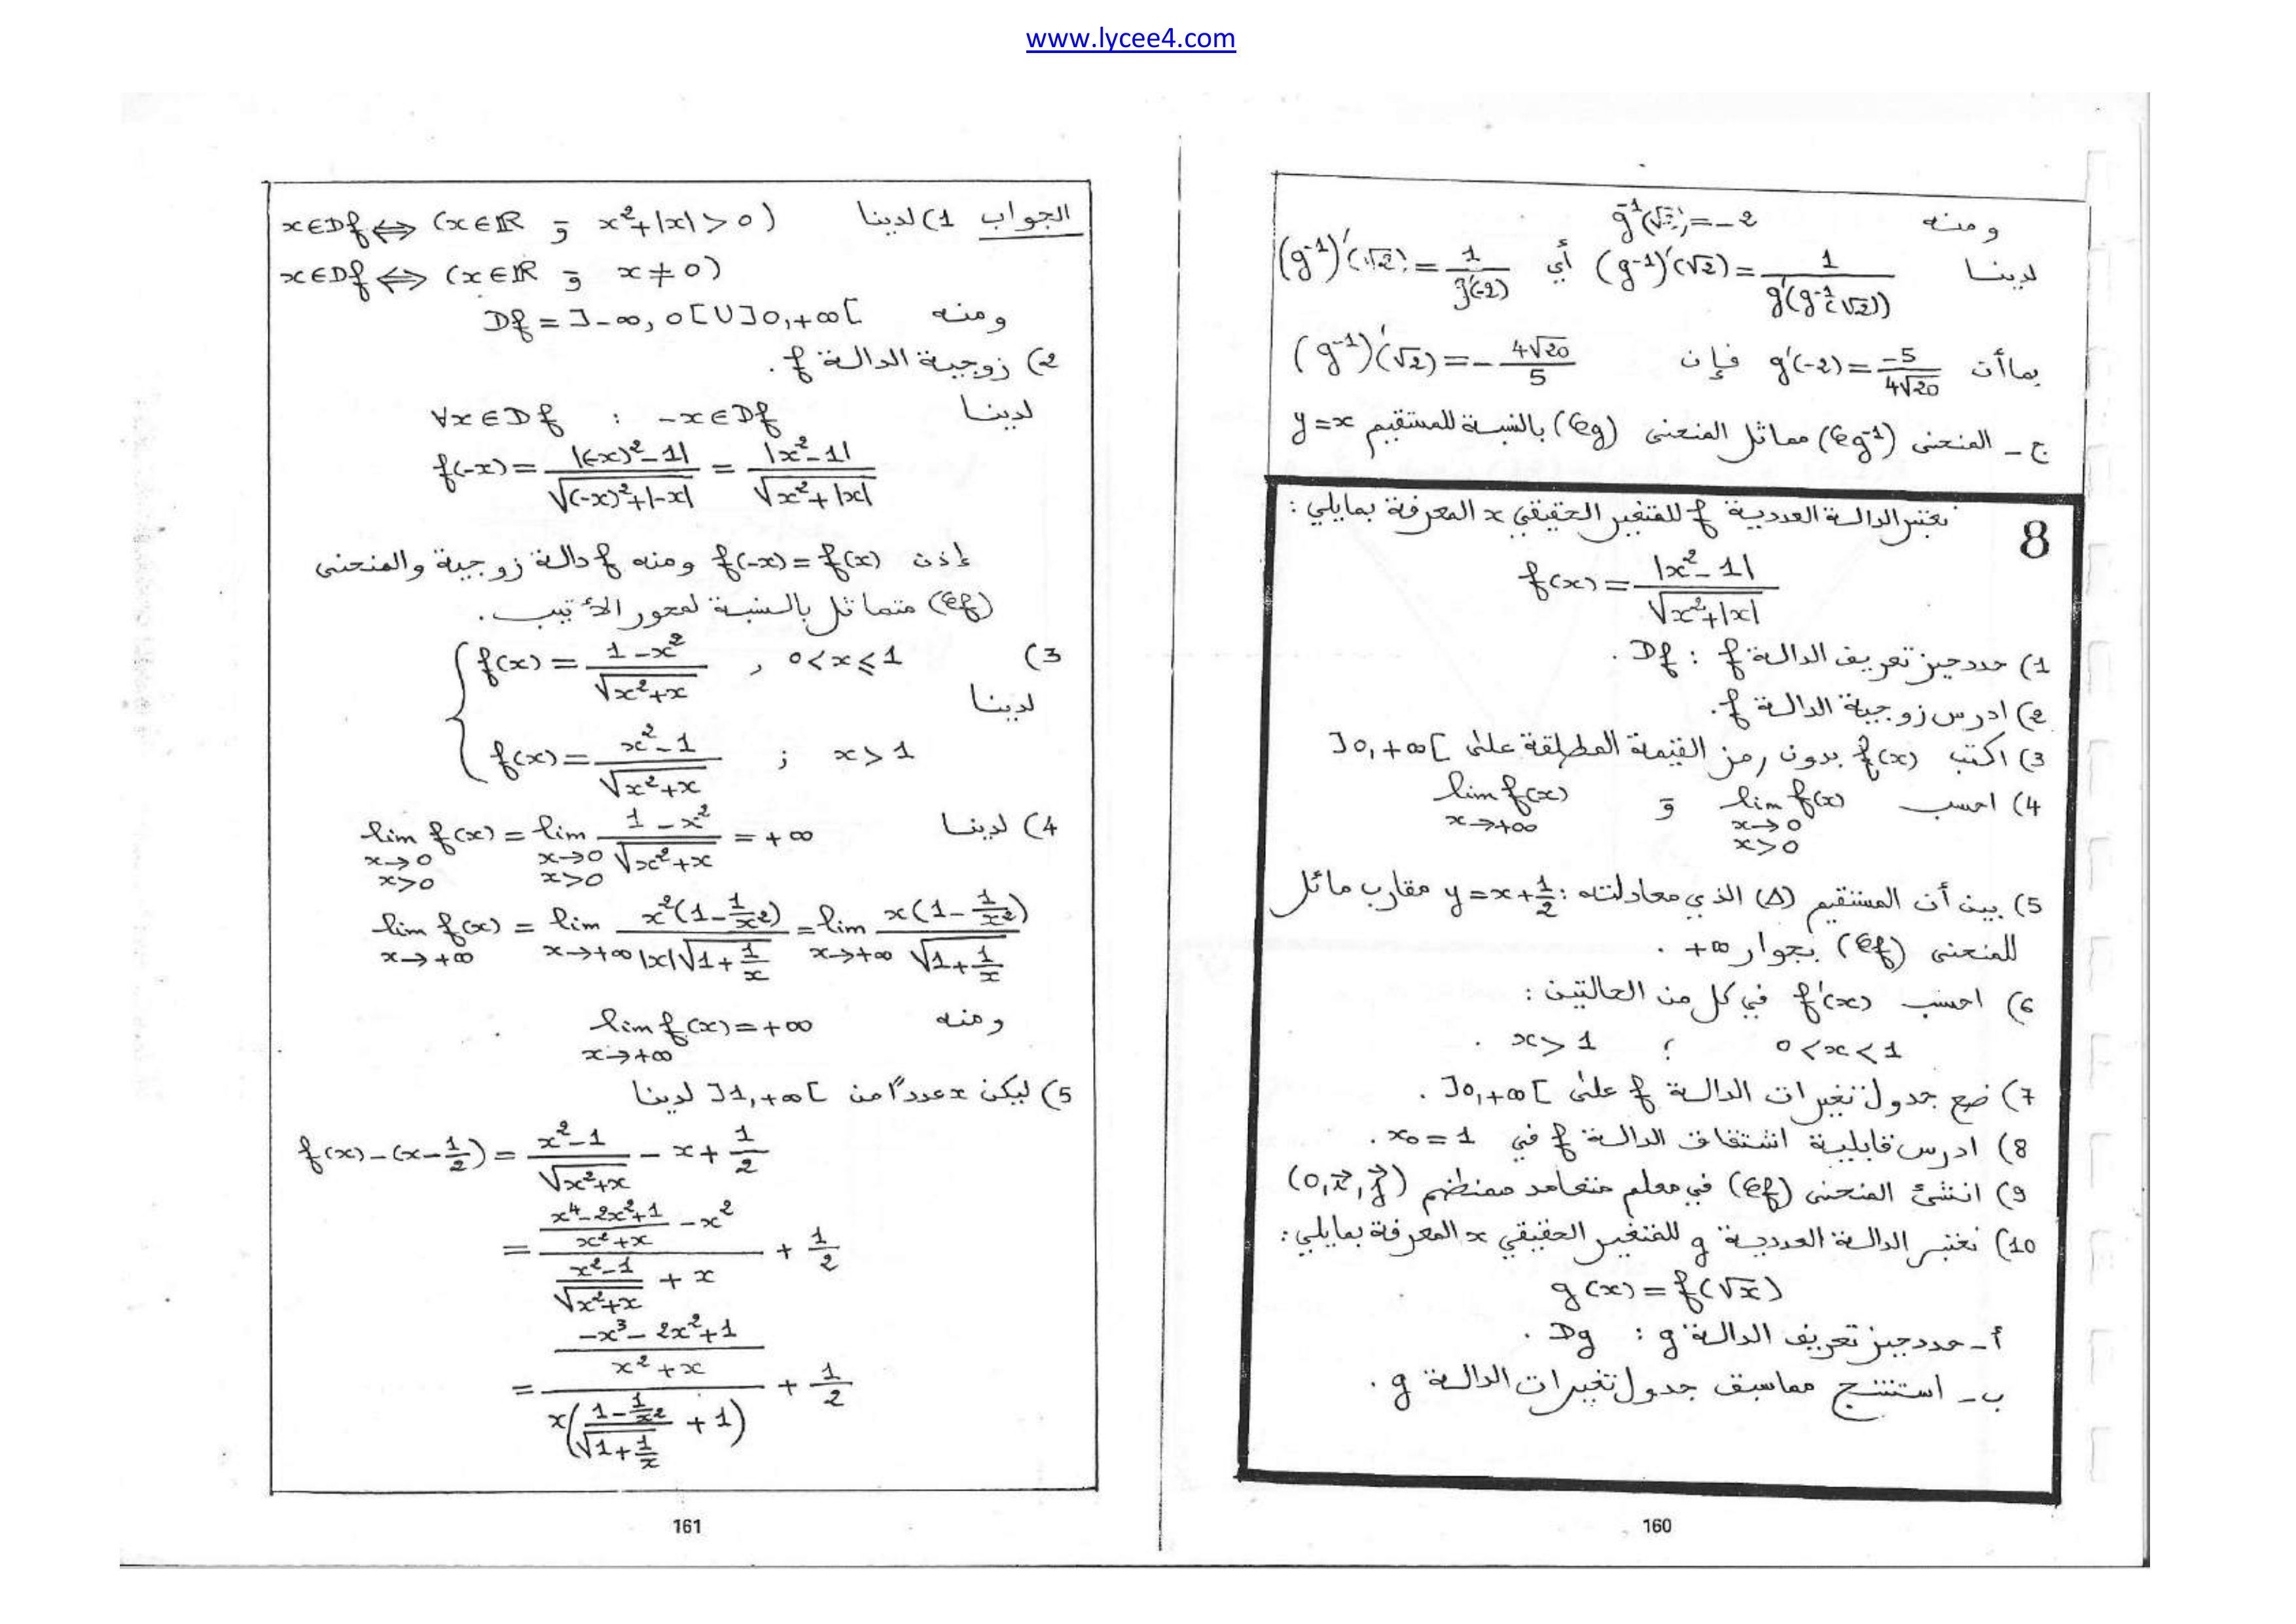 www.lycee4.com
ومنه g⁻¹(√2) = -2
لدينا (g⁻¹)'(√2) = 1 / g'(g⁻¹(√2)) أي (g⁻¹)'(√2) = 1 / g'(-2)
بما أن g'(-2) = -5 / 4√20 فإن (g⁻¹)'(√2) = - 4√20 / 5
ج - المنحنى (Cg⁻¹) مماثل المنحنى (Cg) بالنسبة للمستقيم y = x
8
نعتبر الدالة العددية f للمتغير الحقيقي x المعرفة بمايلي :
f(x) = |x² - 1| / √(x² + |x|)
1) حدد حيز تعريف الدالة f : Df .
2) ادرس زوجية الدالة f .
3) اكتب f(x) بدون رمز القيمة المطلقة على ]0, +∞[
4) احسب lim f(x) x→0 x>0 و lim f(x) x→+∞
5) بين أن المستقيم (Δ) الذي معادلته : y = x + 1/2 مقارب مائل
للمنحنى (Cf) بجوار +∞ .
6) احسب f'(x) في كل من الحالتين :
0 < x < 1 ; x > 1 .
7) ضع جدول تغيرات الدالة f على ]0, +∞[ .
8) ادرس قابلية اشتقاق الدالة f في x₀ = 1 .
9) انشئ المنحنى (Cf) في معلم متعامد ممنظم (0, i⃗, j⃗)
10) نعتبر الدالة العددية g للمتغير الحقيقي x المعرفة بمايلي :
g(x) = f(√x)
أ - حدد حيز تعريف الدالة g : Dg .
ب - استنتج مماسبق جدول تغيرات الدالة g .
160
الجواب 1) لدينا x∈Df ⟺ (x∈ℝ و x² + |x| > 0)
x∈Df ⟺ (x∈ℝ و x ≠ 0)
ومنه Df = ]-∞, 0[ ∪ ]0, +∞[
2) زوجية الدالة f .
لدينا ∀x∈Df : -x∈Df
f(-x) = |(-x)² - 1| / √((-x)² + |-x|) = |x² - 1| / √(x² + |x|)
إذن f(-x) = f(x) ومنه f دالة زوجية والمنحنى
(Cf) متماثل بالنسبة لمحور الأتيب .
3) f(x) = (1 - x²) / √(x² + x) , 0 < x ⩽ 1
لدينا
f(x) = (x² - 1) / √(x² + x) ; x > 1
4) لدينا lim f(x) x→0 x>0 = lim x→0 x>0 (1 - x²) / √(x² + x) = +∞
lim f(x) x→+∞ = lim x→+∞ x²(1 - 1/x²) / |x|√(1 + 1/x) = lim x→+∞ x(1 - 1/x²) / √(1 + 1/x)
ومنه lim f(x) = +∞ x→+∞
5) ليكن x عدداً من ]1, +∞[ لدينا
f(x) - (x - 1/2) = (x² - 1) / √(x² + x) - x + 1/2
= ((x⁴ - 2x² + 1) / (x² + x) - x²) / ((x² - 1) / √(x² + x) + x) + 1/2
= ((-x³ - 2x² + 1) / (x² + x)) / x((1 - 1/x²) / √(1 + 1/x) + 1) + 1/2
161